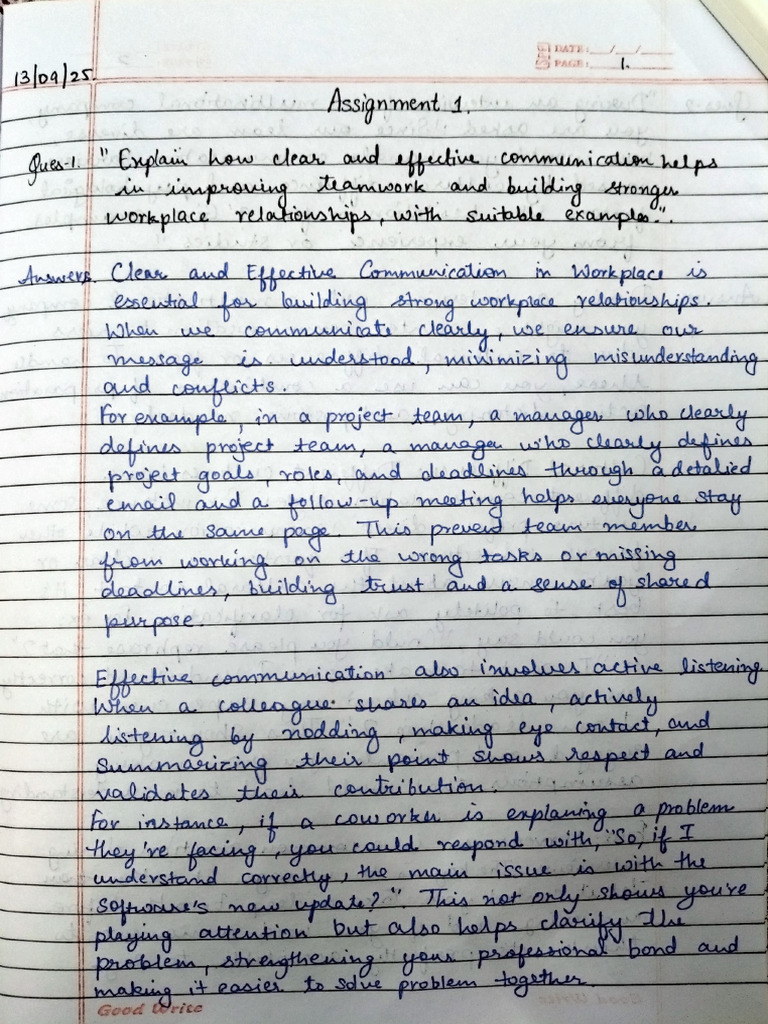 DATE: __/__/__
PAGE: 1.
13/09/25
Assignment 1.
Ques-1. " Explain how clear and effective communication helps
in improving teamwork and building stronger
workplace relationships, with suitable examples.".
Answer. Clear and Effective Communication in Workplace is
essential for building strong workplace relationships.
When we communicate clearly, we ensure our
message is understood, minimizing misunderstanding
and conflicts.
For example, in a project team, a manager who clearly
defines project team, a manager who clearly defines
project goals, roles, and deadlines through a detalied
email and a follow-up meeting helps everyone stay
on the same page. This prevent team member
from working on the wrong tasks or missing
deadlines, building trust and a sense of shared
purpose.
Effective communication also involves active listening.
When a colleague shares an idea, actively
listening by nodding, making eye contact, and
summarizing their point shows respect and
validates their contribution.
For instance, if a coworker is explaning a problem
they're facing, you could respond with, "So, if I
understand correctly, the main issue is with the
software's new update?". This not only shows you're
playing attention but also helps clarify the
problem, strengthening your professional bond and
making it easier to solve problem together.
Good Write